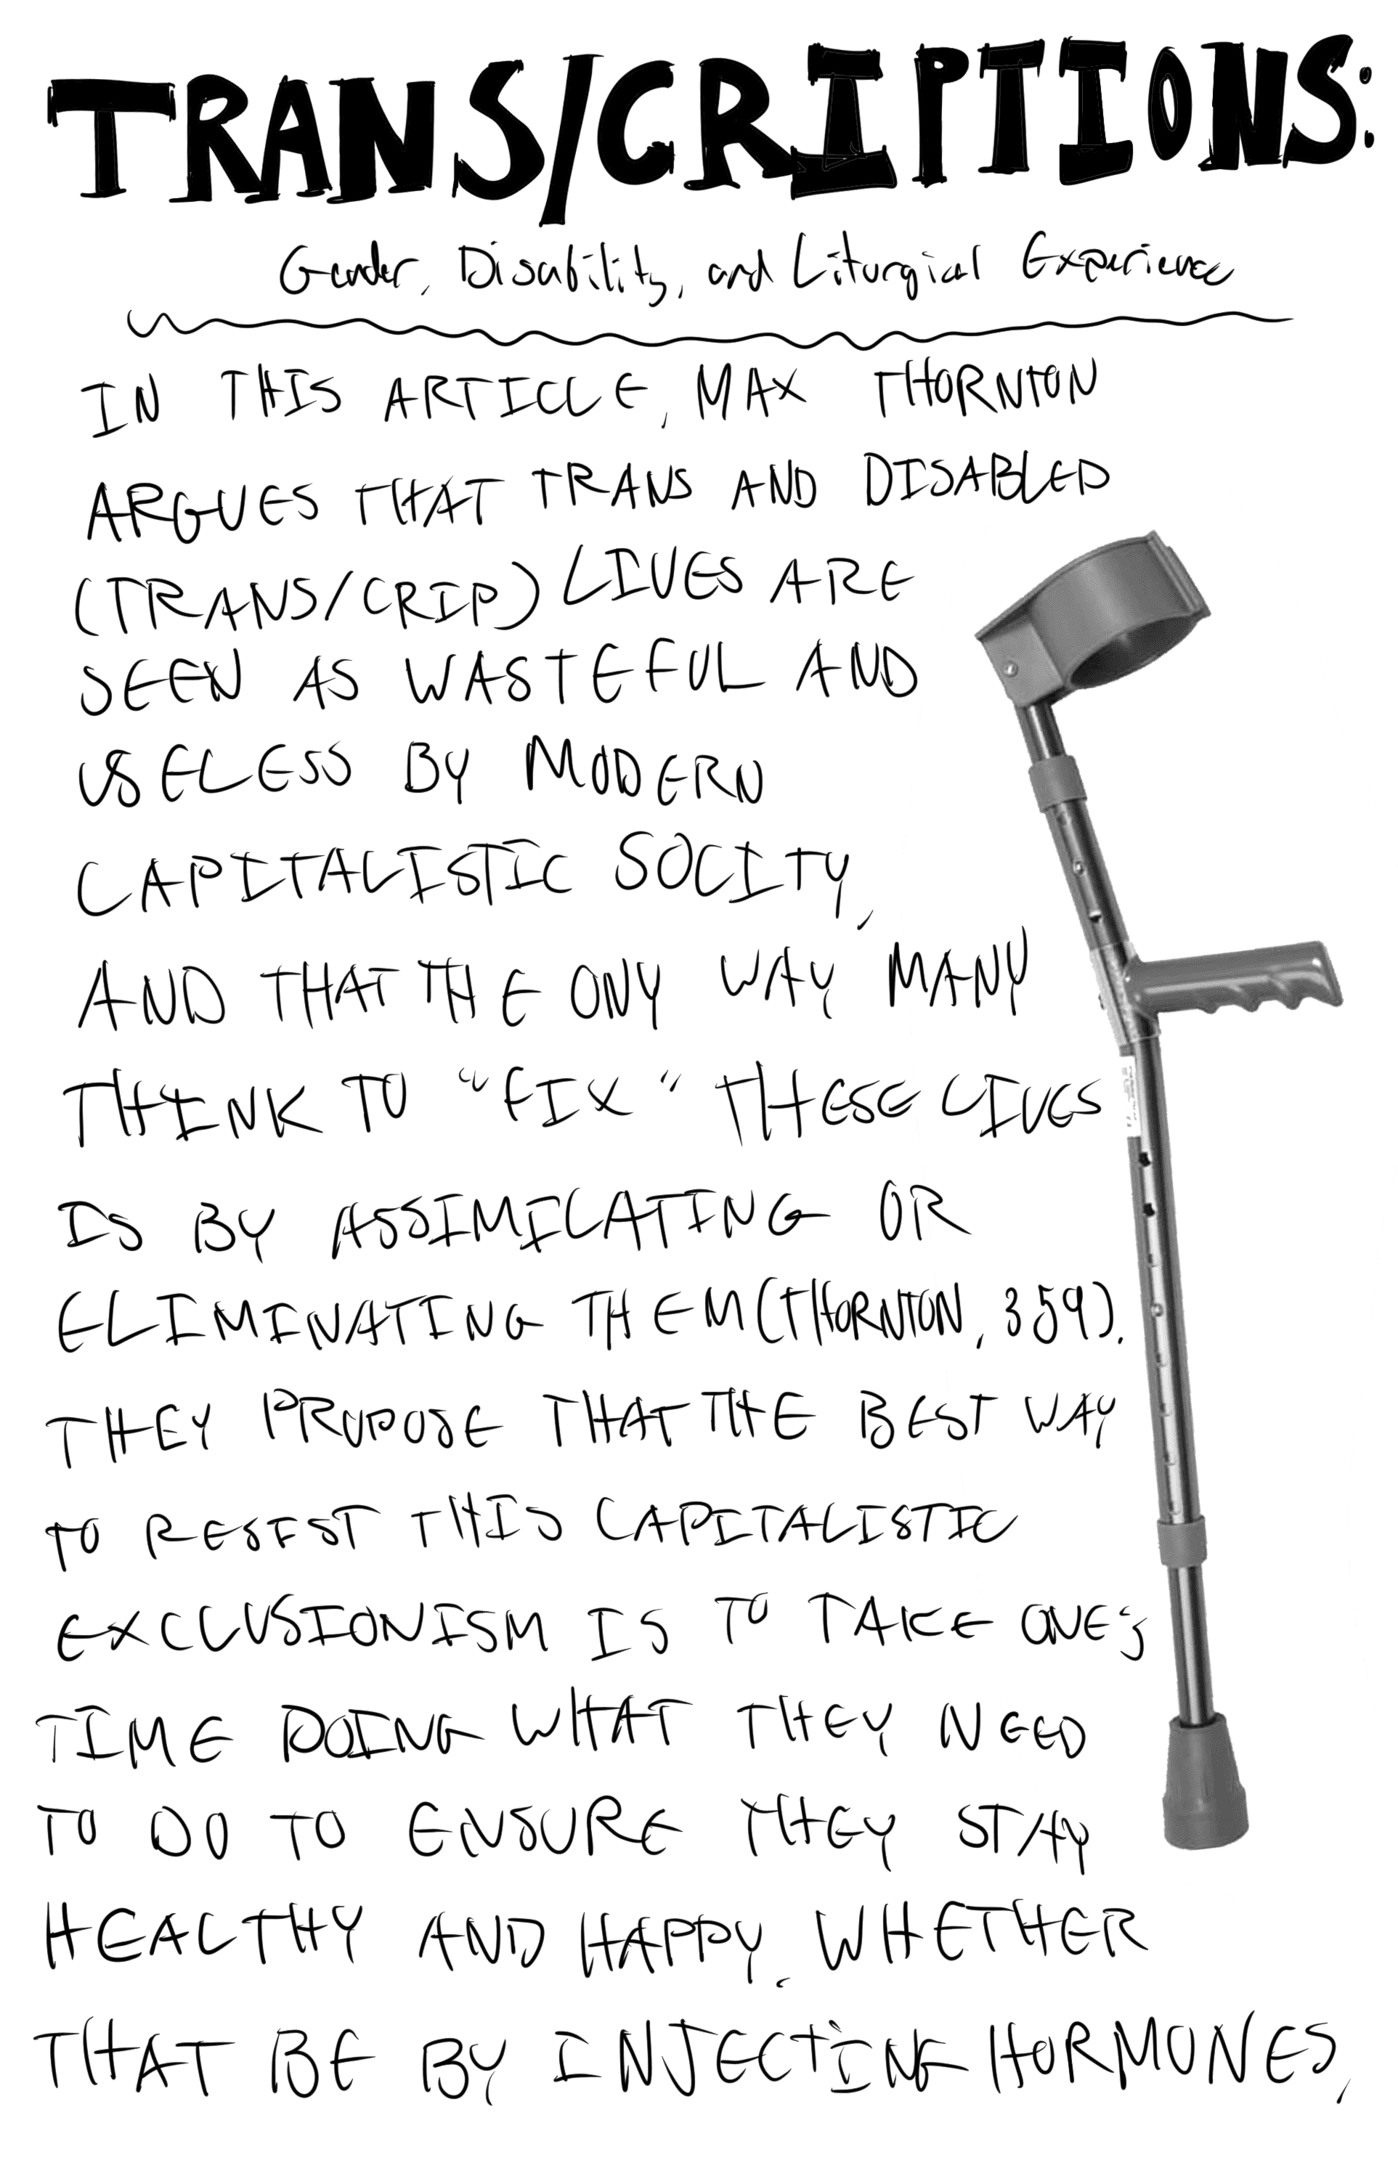 TRANS/CRIPTIONS:
Gender, Disability, and Liturgical Experience
IN THIS ARTICLE, MAX THORNTON
ARGUES THAT TRANS AND DISABLED
(TRANS/CRIP) LIVES ARE
SEEN AS WASTEFUL AND
USELESS BY MODERN
CAPITALISTIC SOCITY,
AND THAT THE ONY WAY MANY
THINK TO "FIX" THESE LIVES
IS BY ASSIMILATING OR
ELIMINATING THEM (THORNTON, 359).
THEY PROPOSE THAT THE BEST WAY
TO RESIST THIS CAPITALISTIC
EXCLUSIONISM IS TO TAKE ONE'S
TIME DOING WHAT THEY NEED
TO DO TO ENSURE THEY STAY
HEALTHY AND HAPPY. WHETHER
THAT BE BY INJECTING HORMONES,